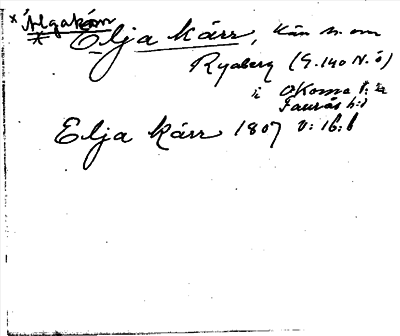 × Älgakärr
* Elja kärr, kärr n. om
Ryaberg (G. 140 N. ö)
i Okoma
h:d
Elja kärr 1807 v: 16: b